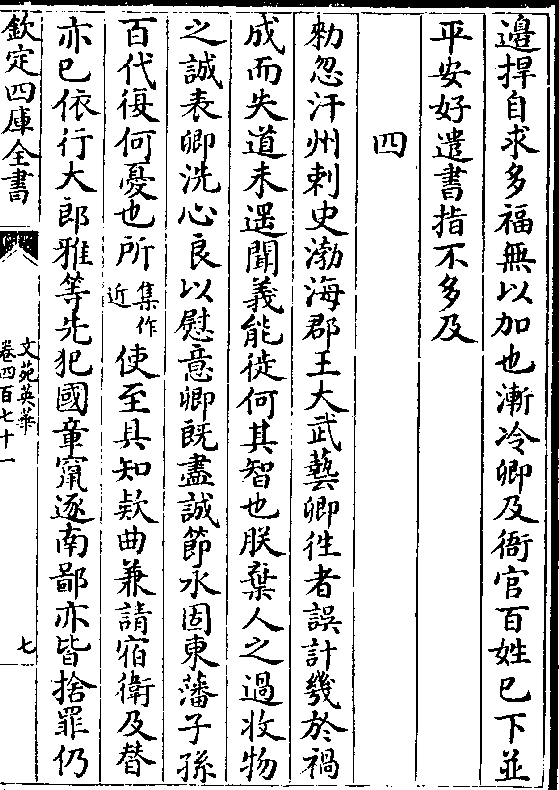 邊捍自求多福無以加也漸冷卿及衙官百姓已下並
平安好遣書指不多及
四
勅忽汗州刺史渤海郡王大武藝卿往者誤計幾於禍
成而失道未遥聞義能徙何其智也朕棄人之過收物
之誠表卿洗心良以慰意卿既盡誠節永固東藩子孫
百代復何憂也所集作近使至具知欵曲兼請宿衛及替
亦已依行大郎雅等先犯國章竄逐南鄙亦皆捨罪仍
欽定四庫全書
文苑英華
卷四百七十一
七